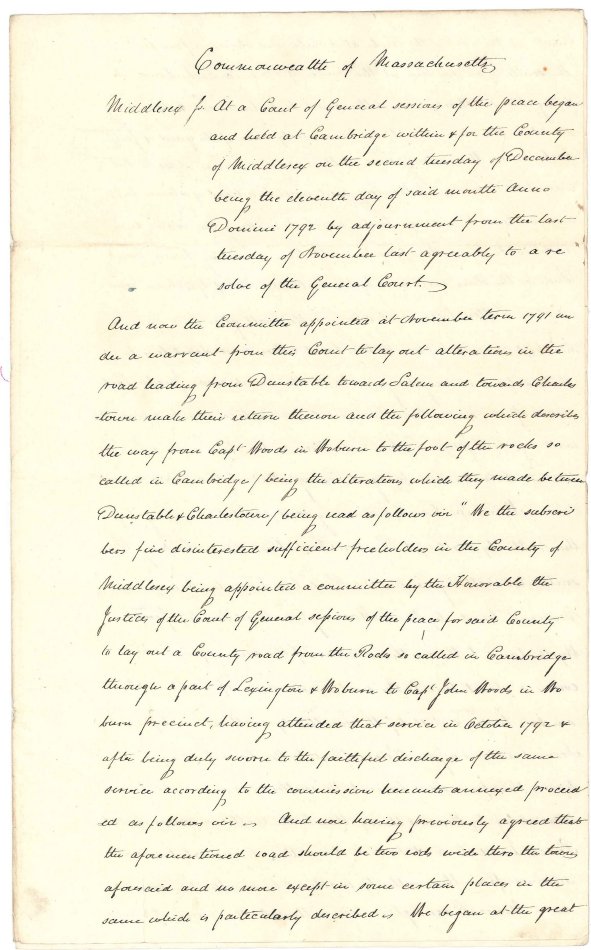 Commonwealth of Massachusetts
Middlesex ss. At a Court of General sessions of the peace began
and held at Cambridge within & for the County
of Middlesex on the second tuesday of December
being the eleventh day of said month Anno
Domini 1792 by adjournment from the last
tuesday of November last agreeably to a re
solve of the General Court.
And now the Committee appointed at November term 1791 un
der a warrant from this Court to lay out alterations in the
road leading from Dunstable towards Salem and towards Charles
-town make their return thereon and the following which describes
the way from Capt Woods in Woburn to the foot of the rocks so
called in Cambridge / being the alterations which they made between
Dunstable & Charlestown / being read as follows viz "We the subscri
bers five disinterested sufficient freeholders in the County of
Middlesex being appointed a committee by the Honorable the
Justices of the Court of General sessions of the peace for said County
to lay out a County road from the Rocks so called in Cambridge
through a part of Lexington & Woburn to Capt John Woods in Wo
burn precinct, having attended that service in October 1792 &
after being duly sworn to the faithful discharge of the same
service according to the commission hereunto annexed proceed
ed as follows viz. And now having previously agreed that
the aforementioned road should be two rods wide thro the towns
aforesaid and no more except in some certain places in the
same which is particularly described. We began at the great